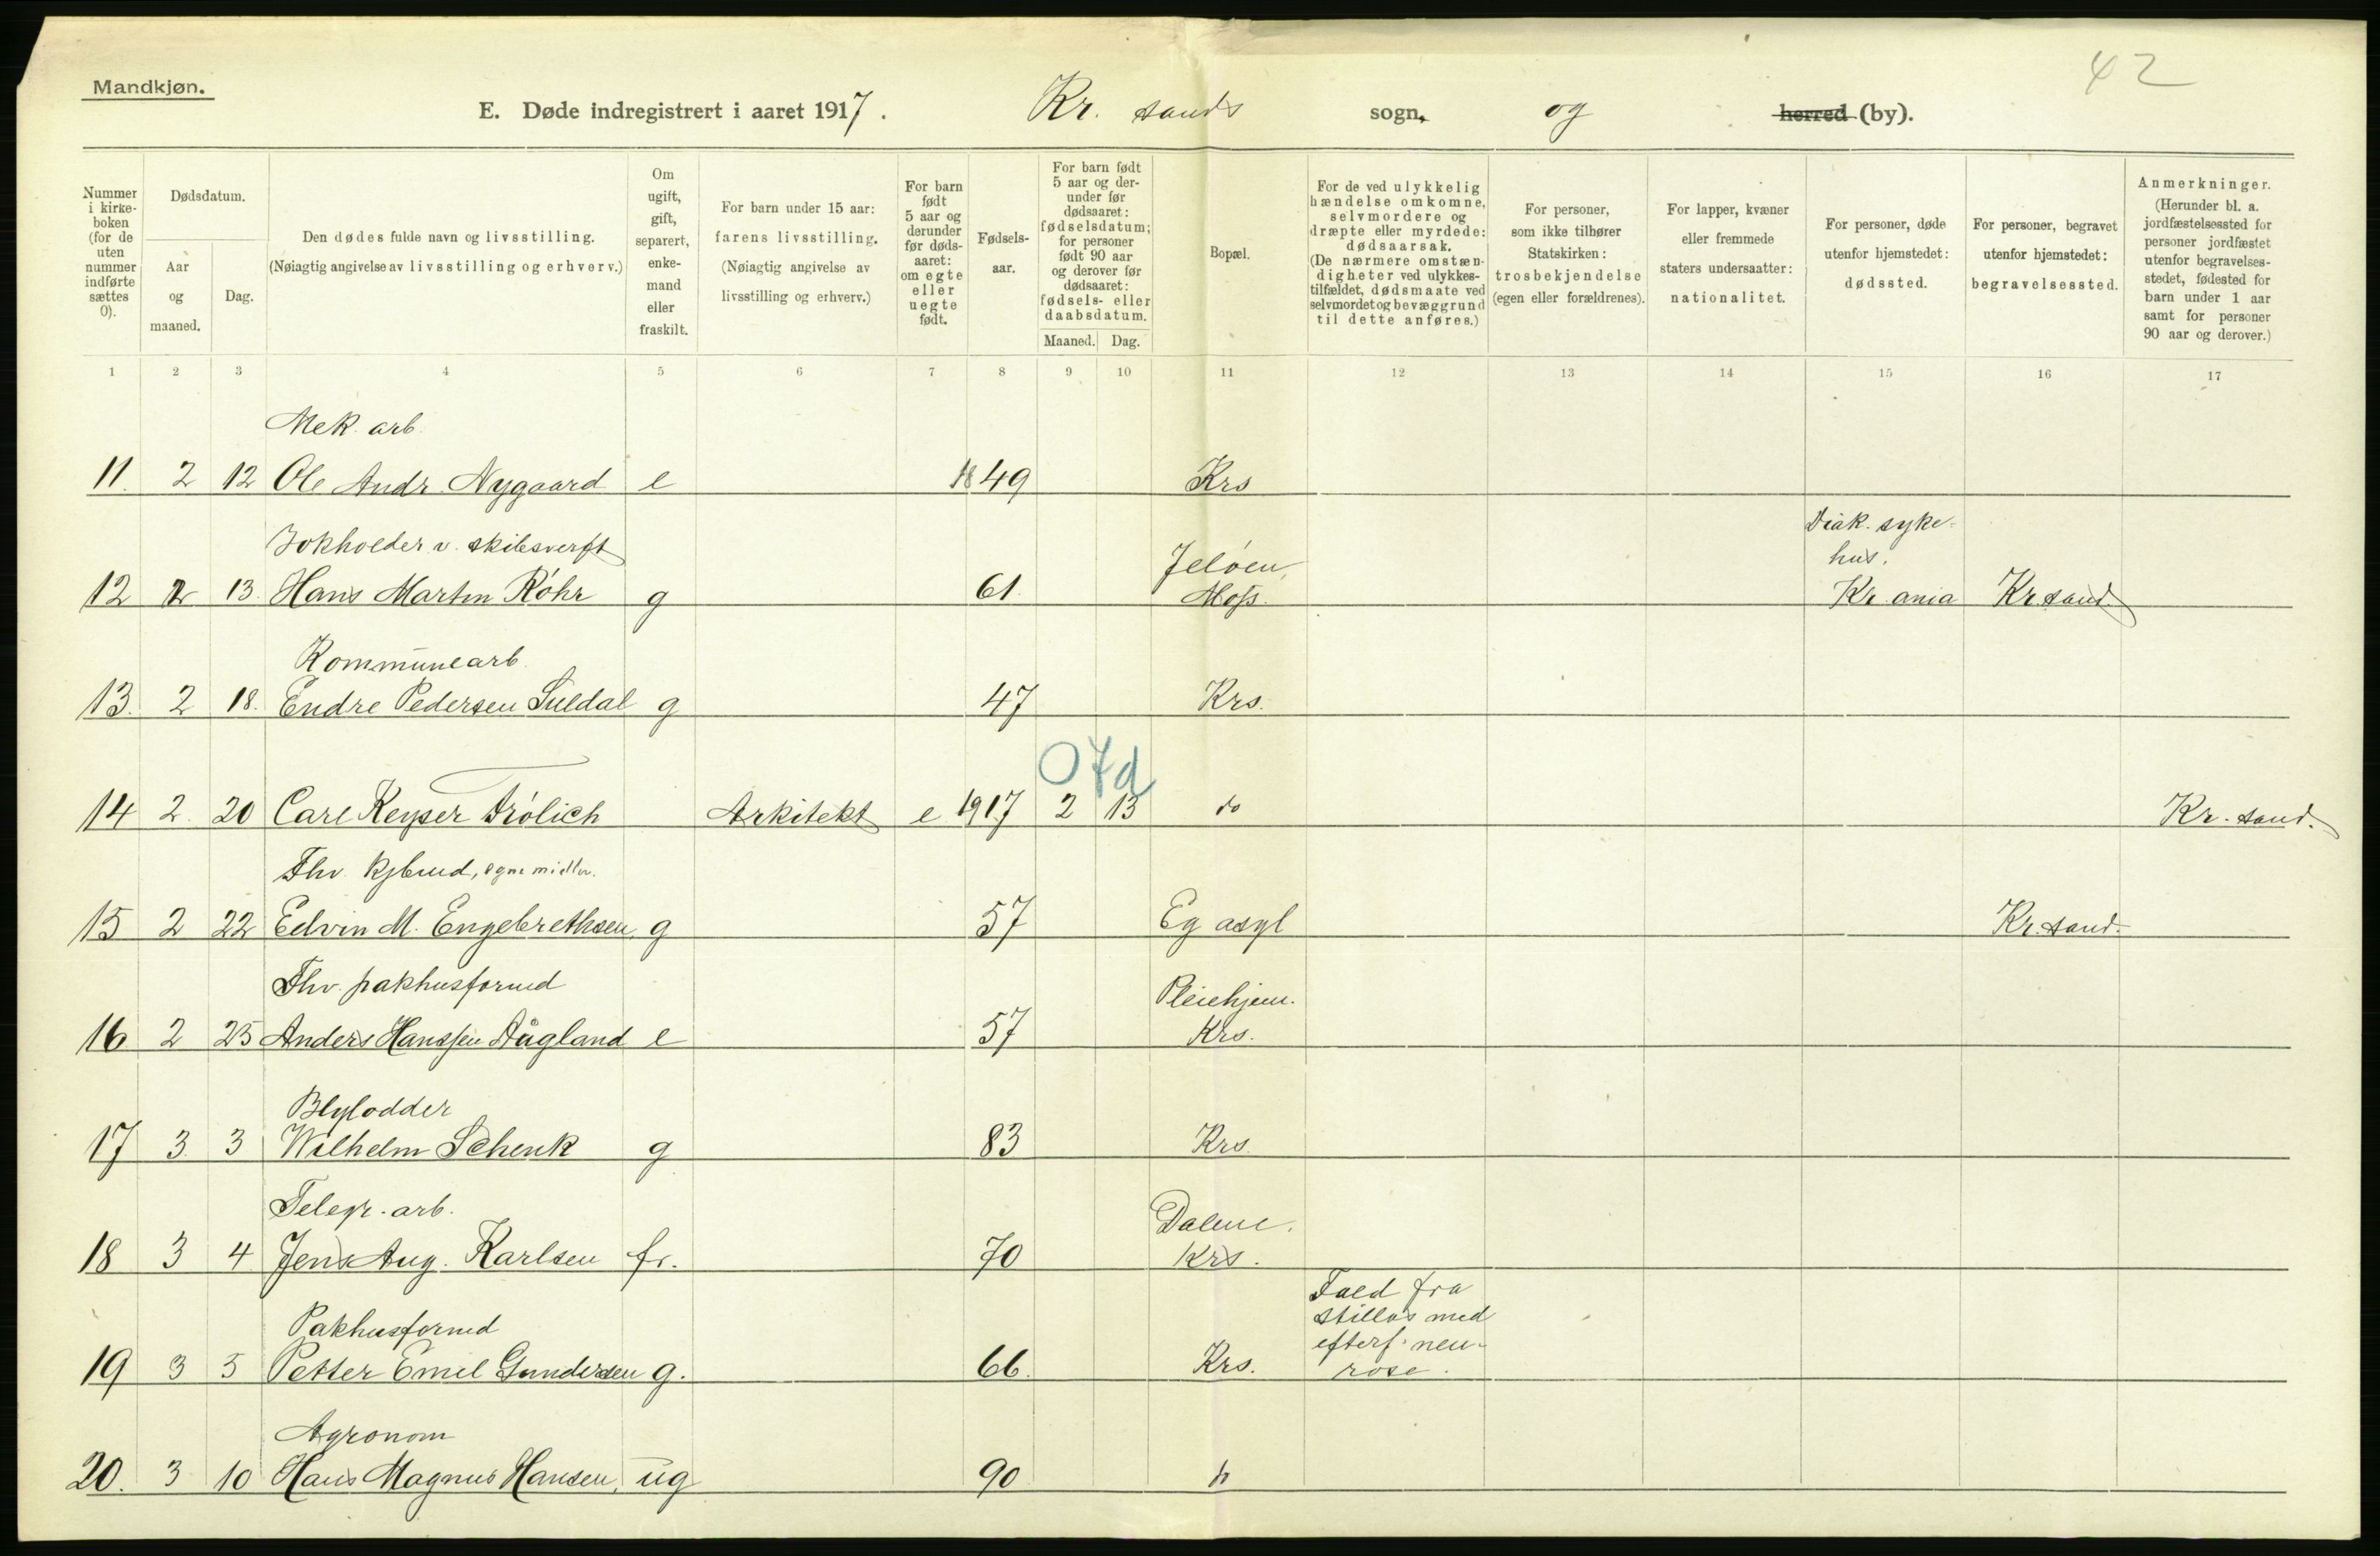 42
Mandkjøn.
E. Døde indregistrert i aaret 1917. Kr. sands sogn, og herred (by).
Nummer i kirke-boken (for de uten nummer indførte sættes 0).
Dødsdatum.
Aar og maaned.
Dag.
Den dødes fulde navn og livsstilling.
(Nøiagtig angivelse av livsstilling og erhverv.)
Om ugift, gift, separert, enke-mand eller fraskilt.
For barn under 15 aar:
farens livsstilling.
(Nøiagtig angivelse av
livsstilling og erhverv.)
For barn født 5 aar og derunder før døds-aaret: om egte eller uegte født.
Fødsels-aar.
For barn født 5 aar og der-under før dødsaaret: fødselsdatum; for personer født 90 aar og derover før dødsaaret: fødsels- eller daabsdatum.
Maaned. Dag.
Bopæl.
For de ved ulykkelig hændelse omkomne, selvmordere og dræpte eller myrdede: dødsaarsak. (De nærmere omstæn-digheter ved ulykkes-tilfældet, dødsmaate ved selvmordet og bevæggrund til dette anføres.)
For personer, som ikke tilhører Statskirken: trosbekjendelse (egen eller forældrenes).
For lapper, kvæner eller fremmede staters undersaatter: nationalitet.
For personer, døde utenfor hjemstedet: dødssted.
For personer, begravet utenfor hjemstedet: begravelsessted.
Anmerkninger.
(Herunder bl. a. jordfæstelsessted for personer jordfæstet utenfor begravelses-stedet, fødested for barn under 1 aar samt for personer 90 aar og derover.)
1 2 3 4 5 6 7 8 9 10 11 12 13 14 15 16 17
Mek. arb.
11. 2 12 Ole Andr. Nygaard e 1849 Krs
Bokholder v. skibsverft Jeløen, Diak. syke-
hus.
12 2 13. Hans Martin Röhr g 61. Moss. Kr.ania Kr.sand.
Kommunearb.
13. 2 18. Endre Pedersen Suldal g 47 Krs.
0 7d
14 2. 20 Carl Keyser Frölich Arkitekt e 1917 2 13 do Kr. sand.
Fhv. kjbmd, egne midler.
15 2 22 Edvin M. Engebrethsen g 57 Eg asyl Kr. sand.
Fhv. pakhusformd Pleiehjem.
16 2 25 Anders Hanssen Augland e 57 Krs.
Blylodder
17 3. 3 Wilhelm Schenk g 83 Krs.
Telegr. arb. Dalene.
18 3 4 Jens Aug. Karlsen fr. 70 Krs.
Fald fra
stillas med
Pakhusformd efterf. neu-
19 3 5 Petter Emil Gundersen g. 66. Krs. rose.
Agronom
20. 3 10 Hans Magnus Hansen, ug 90 do